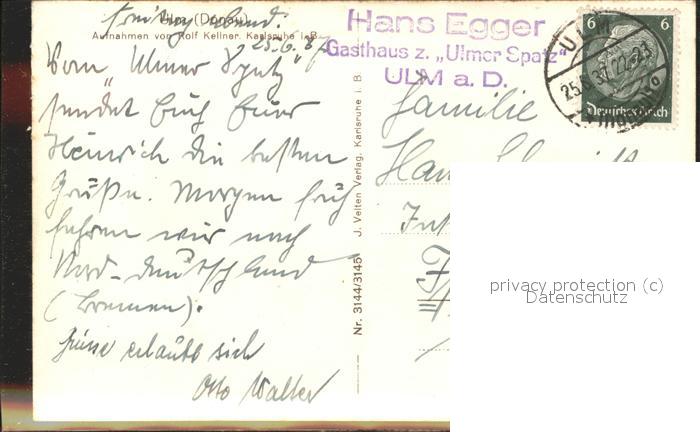 Ulm (Donau)
Freitag abend.
Aufnahmen von Rolf Kellner, Karlsruhe i. B.
25.6.37
Vom „Ulmer Spatz“
sendet Euch Euer
Heinrich die besten
Grüße. Morgen früh
fahren wir nach
Nord-Deutschland
(Bremen).
erlaubt sich
Otto Walter
Nr. 3144/3145 J. Velten Verlag, Karlsruhe i. B.
Hans Egger
Gasthaus z. „Ulmer Spatz“
ULM a. D.
6 6
Deutsches Reich
ULM
Familie
privacy protection (c)
Datenschutz